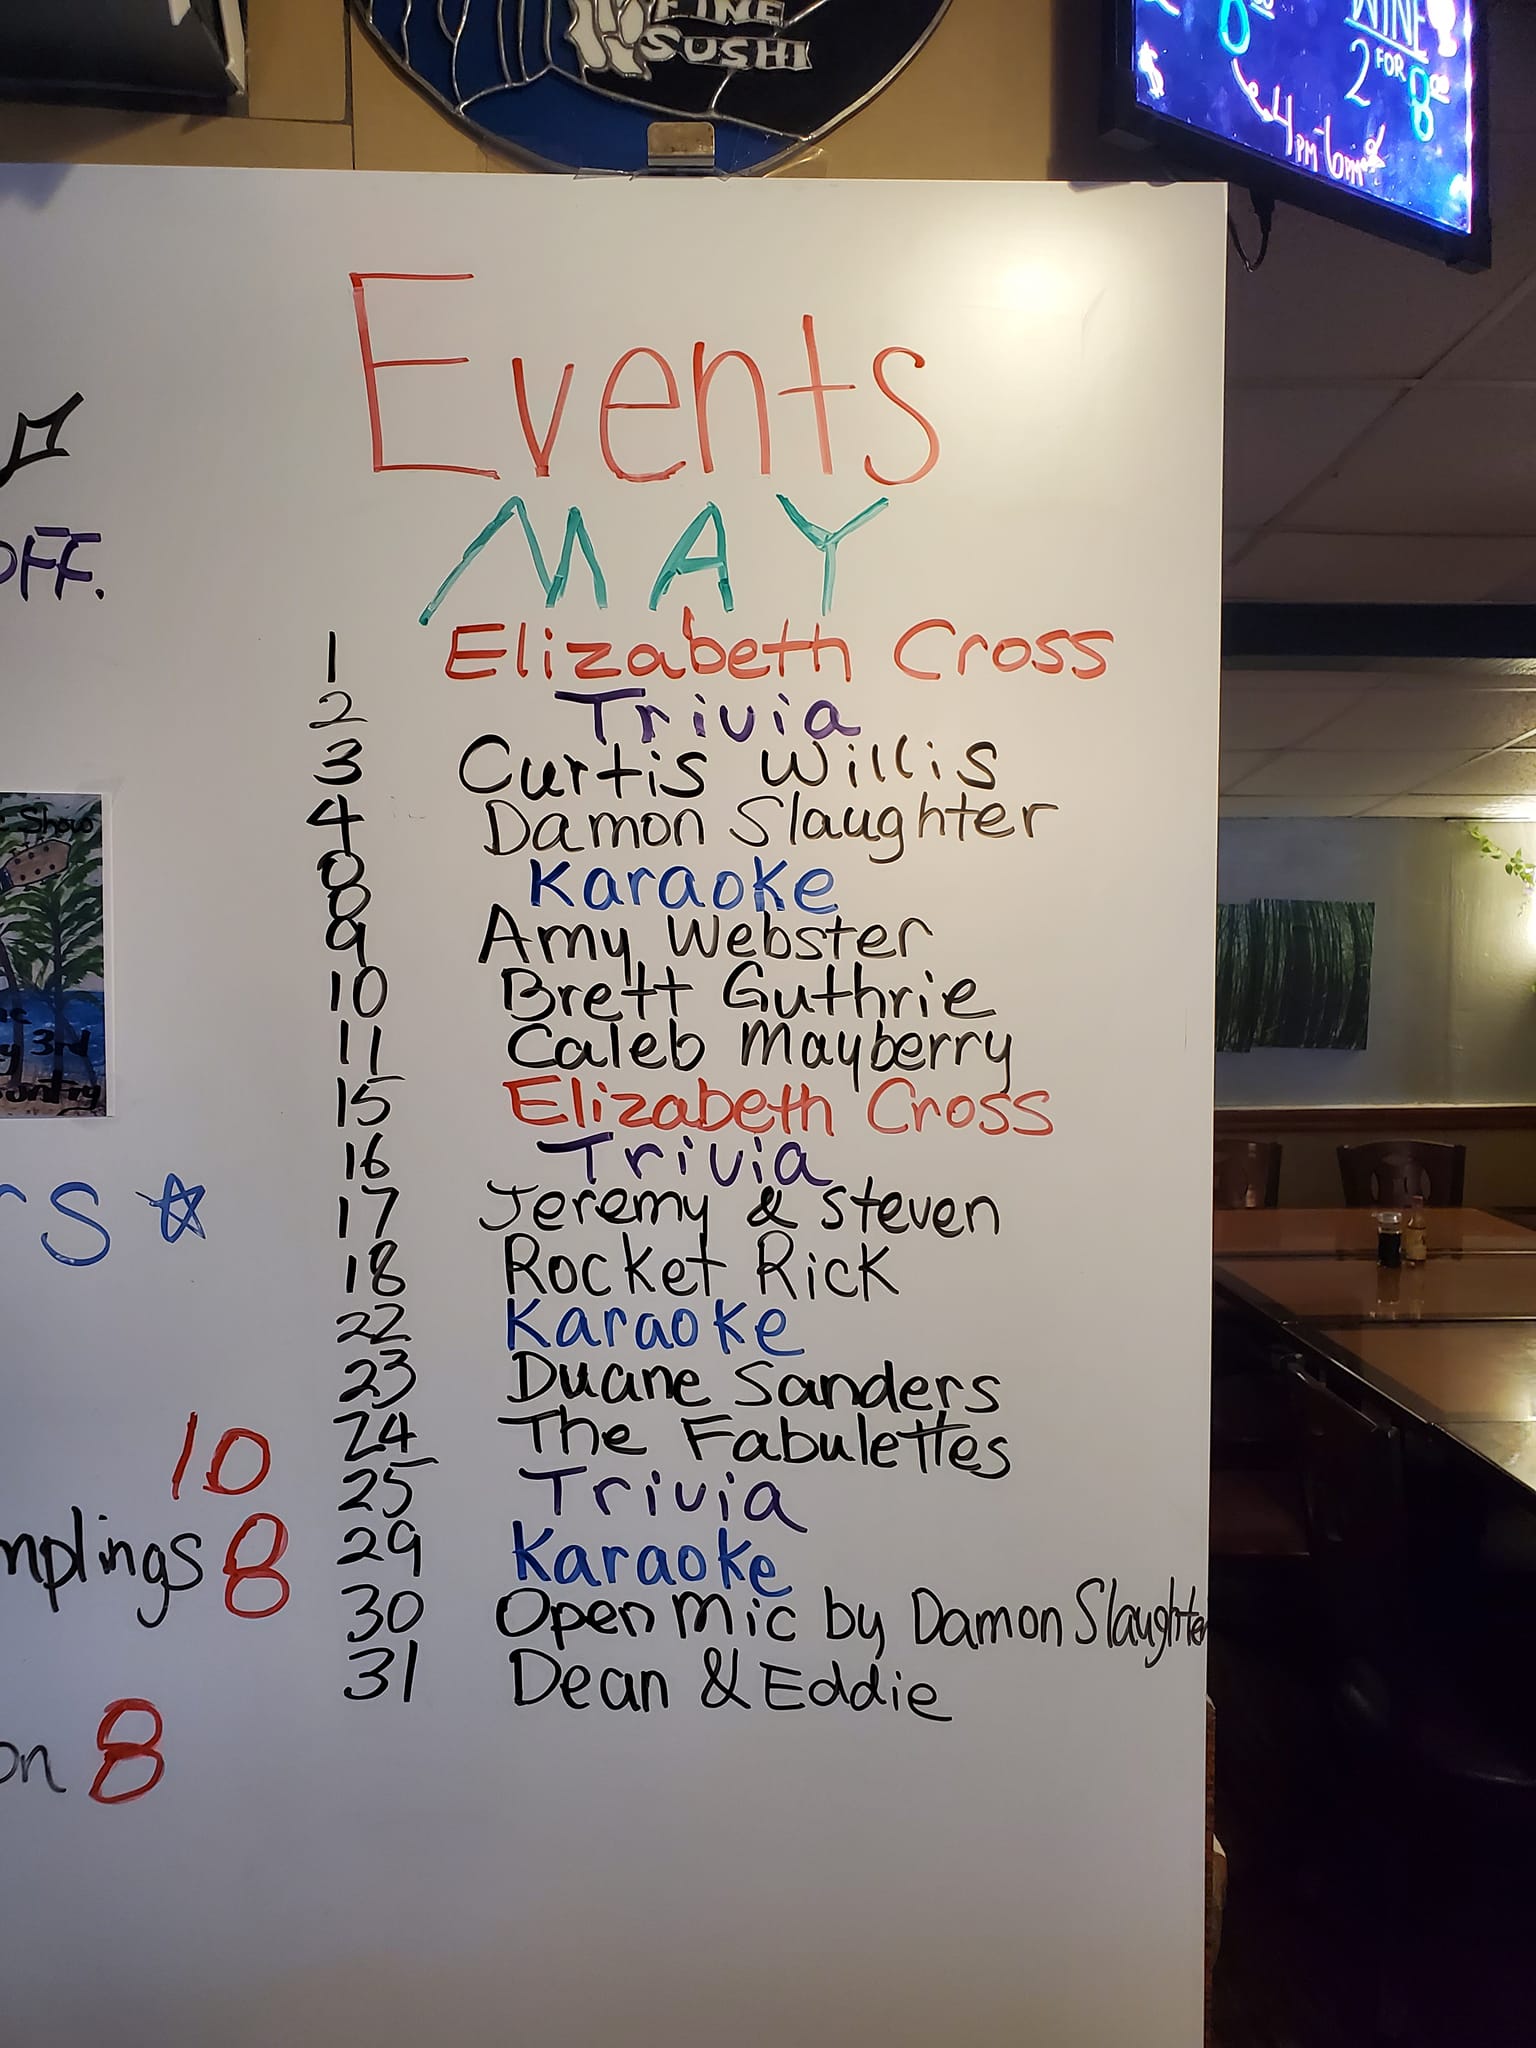 FINE
SUSHI
8
WINE
2 FOR 8
$
4PM-6PM
Events
MAY
OFF.
1 Elizabeth Cross
2 Trivia
3 Curtis Willis
4 Damon Slaughter
8 Karaoke
9 Amy Webster
10 Brett Guthrie
11 Caleb Mayberry
15 Elizabeth Cross
16 Trivia
17 Jeremy & Steven
18 Rocket Rick
22 Karaoke
23 Duane Sanders
24 The Fabulettes
25 Trivia
29 Karaoke
30 Open Mic by Damon Slaughter
31 Dean & Eddie
Show
3rd
rs
10
mplings 8
on 8